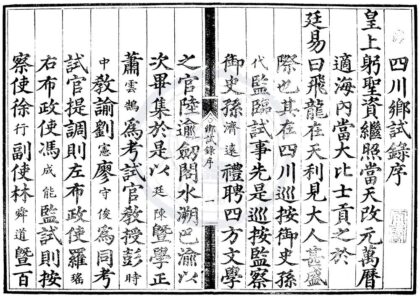 四川鄉試錄序
皇上躬聖資繼照當天改元萬曆
適海內當大比士貢之於
廷易曰飛龍在天利見大人甚盛
際也其在四川巡按御史孫
代監臨試事先是巡按監察
御史孫濟遠禮聘四方文學
鄉試錄序 一
之官陸逾劒閣水溯巴渝以
次畢集於是以廷陳暨學正
蕭雲鵠為考試官教授彭時
中教諭劉憲廖守俊為同考
試官提調則左布政使羅瑤
右布政使馮成能監試則按
察使徐行副使林舜道暨百